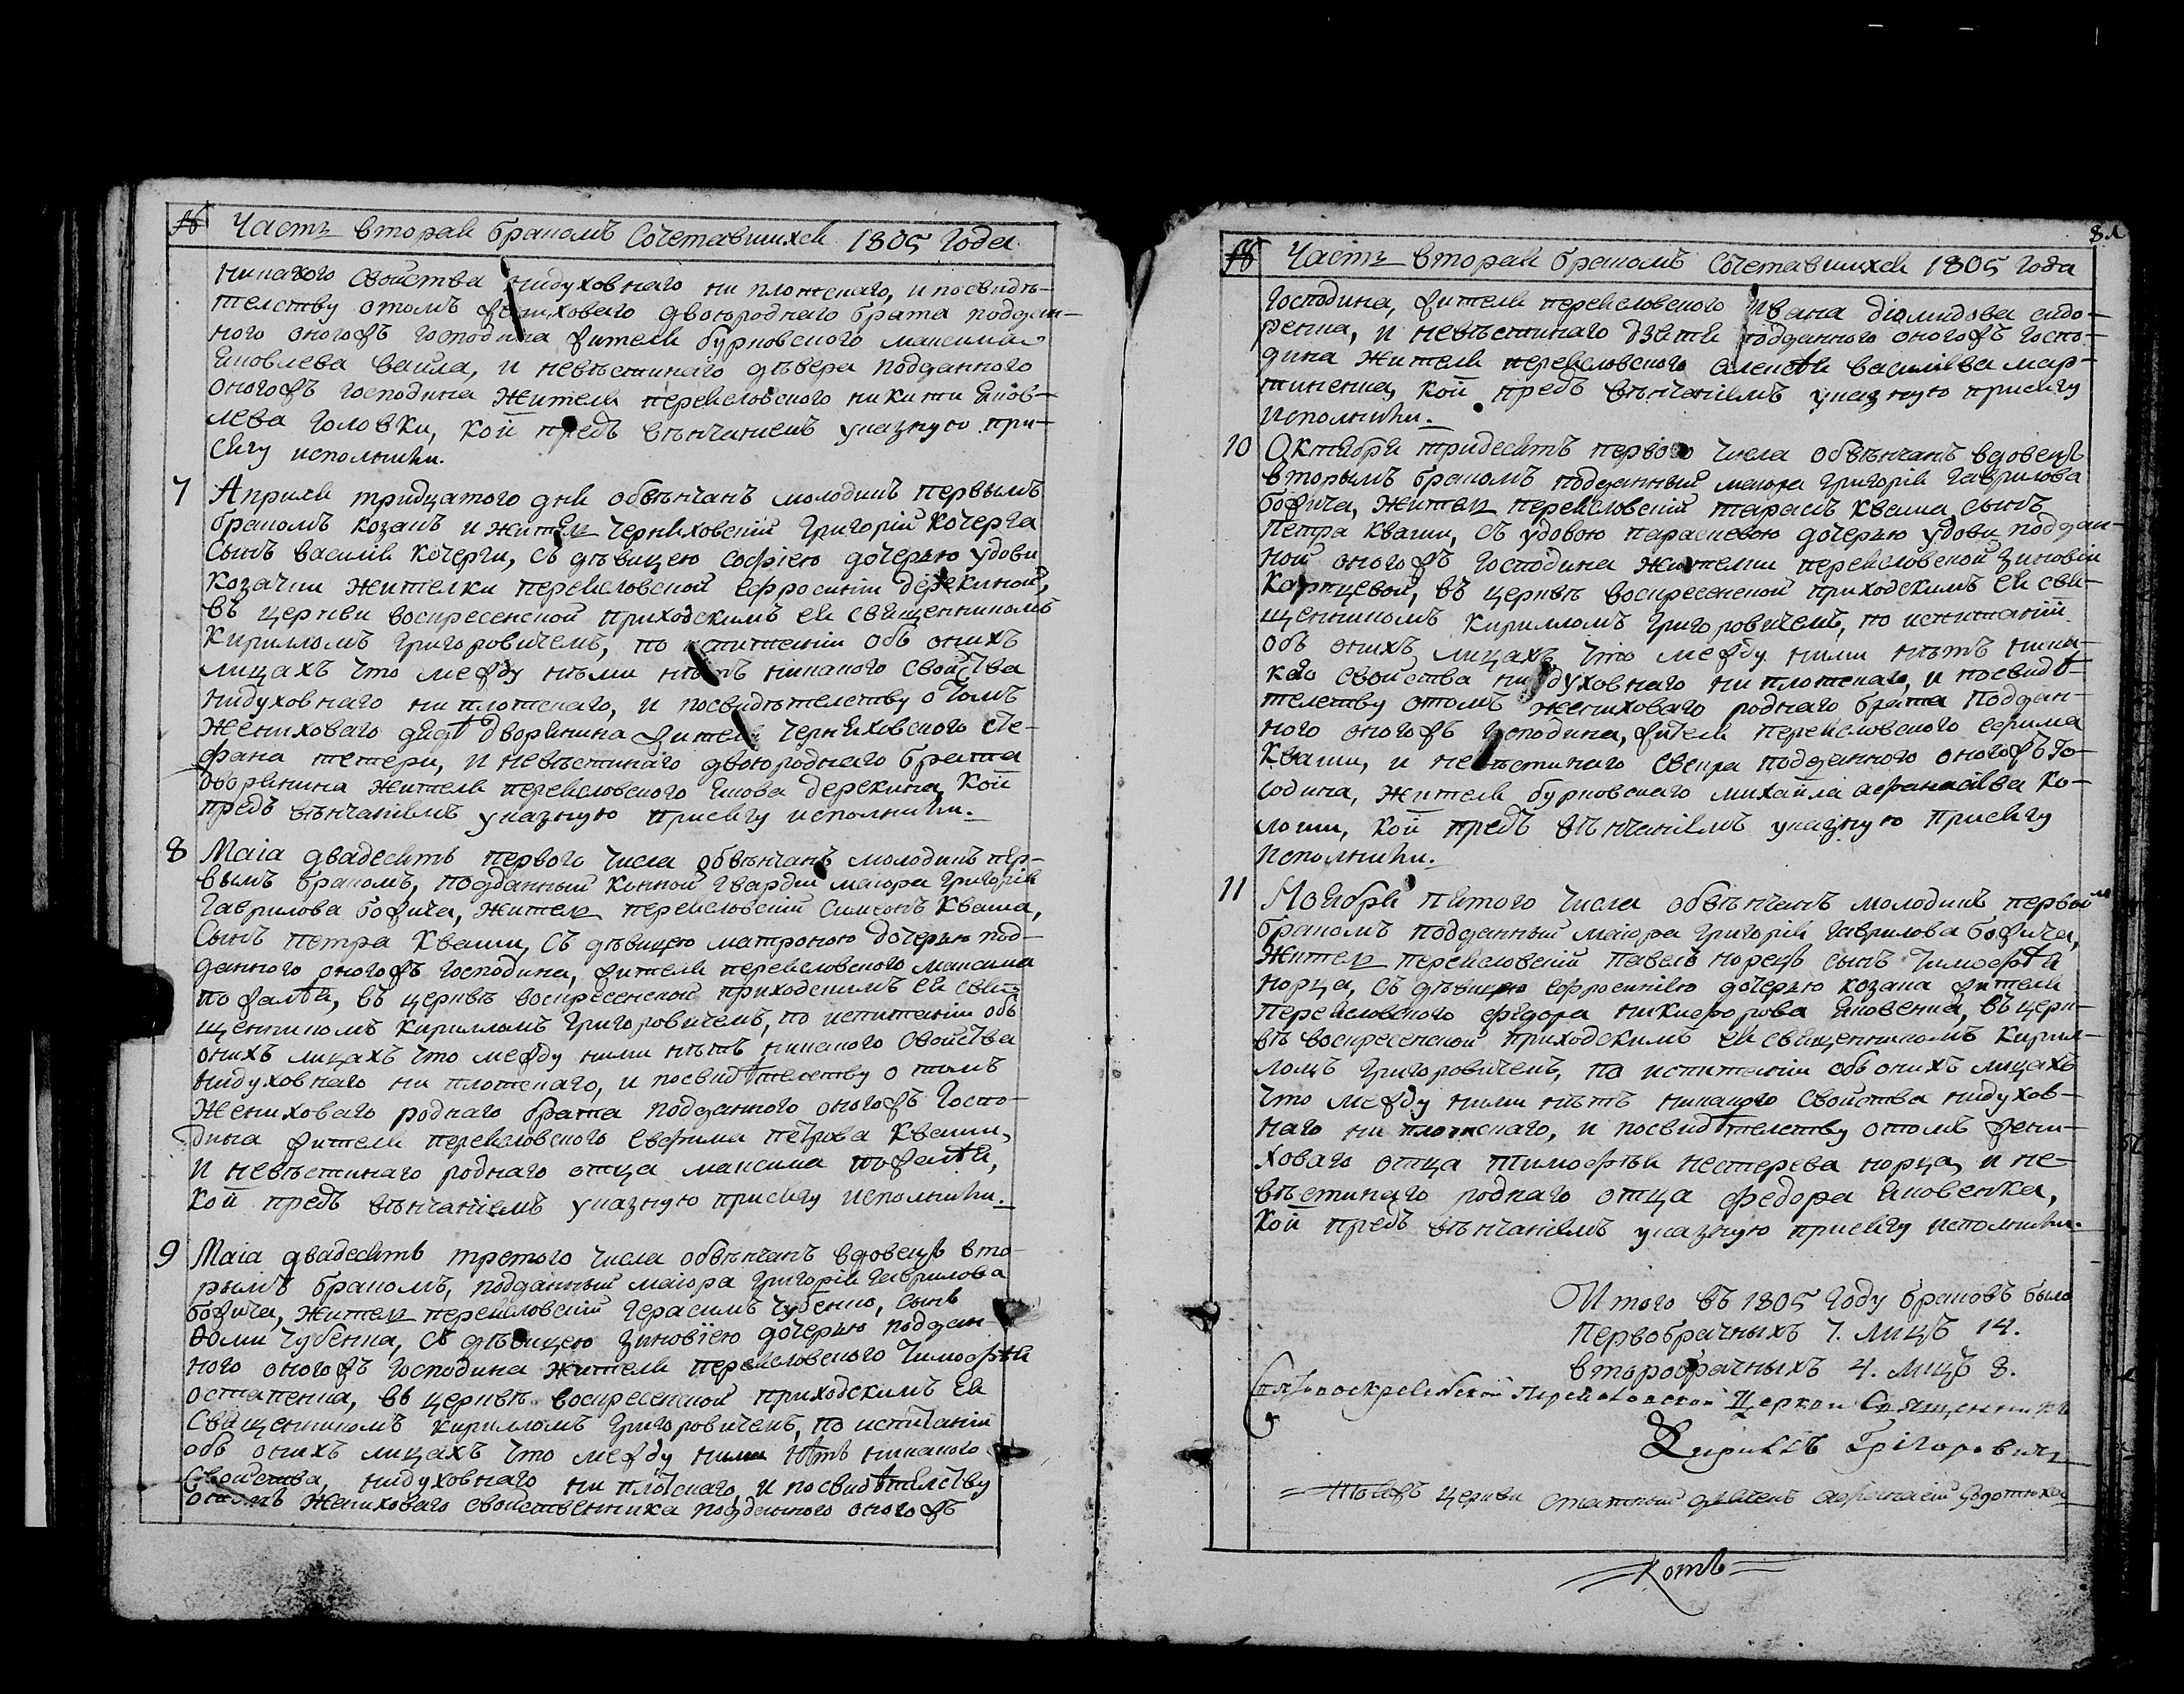 № Часть вторая бракомъ Сочетавшихся 1805 Года
никакого свойства нидуховнаго ни плотскаго, и посвидѣ-
телству отомъ жениховаго двоюроднаго брата поддан-
ного оногожъ господина жителя бурковского максима
Яковлева вайла, и невѣстинаго дѣвера подданного
оногожъ господина жителя переясловского никити Яков-
лева головки, кои предъ вѣнчаниемъ указную при-
сягу исполнили.
7 Априля тридцатого дня обвѣнчанъ молодикъ первымъ
бракомъ козакъ и житель черняховскій Григорій Кочерга
Сынъ василія кочерги, съ дѣвицею софіею дочерью удови
козачки жителки переясловской ефросиніи дерекиной,
въ церкви воскресенской приходскимъ ея священникомъ
Кирилломъ Григоровичемъ, по испитаніи объ онихъ
лицахъ что между ними нѣтъ никакого свойства
нидуховнаго ни плотскаго, и посвидѣтелству о томъ
жениховаго дядѣ дворянина жителя черняховского сте-
фана тетери, и невѣстинаго двоюроднаго брата
дворянина жителя переясловского Якова дерекина, кои
предъ вѣнчаніемъ указную присягу исполнили.
8 Маіа двадесять первого числа обвѣнчанъ молодикъ пер-
вымъ бракомъ, подданный конной гвардіи маіора Григорія
Гаврилова божича, житель переясловскій Симеонъ Кваша,
Сынъ петра Кваши, съ дѣвицею матроною дочерью под-
данного оногожъ господина, жителя переясловского максима
пожалѣя, въ церквѣ воскресенской приходскимъ ея свя-
щенникомъ Кирилломъ Григоровичемъ, по испитаніи объ
онихъ лицахъ что между ними нѣтъ никакого свойства
нидуховнаго ни плотскаго, и посвидѣтелству о томъ
Жениховаго роднаго брата подданного оногожъ Госпо-
дина жителя переясловского Евфима петрова Кваши,
и невѣстинаго роднаго отца максима пожалѣя,
кои предъ вѣнчаніемъ указную присягу исполнили.
9 Маіа двадесять третого числа обвѣнчанъ вдовецъ вто-
рымъ бракомъ, подданный маіора Григорія Гаврилова
божича, житель переясловскій Герасимъ Чубенко, сынъ
Фоми Чубенка, съ дѣвицею зиновіею дочерью поддан
ного оногожъ господина жителя переясловского Тимофѣя
остапенка, въ церквѣ воскресенской приходскимъ ея
Священникомъ Кирилломъ Григоровичемъ, по испитаніи
объ онихъ лицахъ что между ними нѣтъ никакого
Свойства, нидуховнаго ни плотскаго, и посвидѣтелству
отомъ жениховаго свойственника подданного оногожъ
№ Часть вторая бракомъ Сочетавшихся 1805 года
Господина, жителя переясловского Ивана діомидова сидо-
ренка, и невѣстинаго дзятя подданного оногожъ госпо-
дина жителя переясловского алексѣя василіева мар-
тиненка, кои предъ вѣнчаніемъ указную присягу
исполнили.
10 Октября тридесять первого числа обвѣнчанъ вдовецъ
вторымъ бракомъ подданный маіора Григорія Гаврилова
божича, житель переясловскій тарасъ Кваша, сынъ
Петра Кваши, съ удовою парасковою дочерью удови поддан-
ной оногожъ господина жителки переясловской зиновіи
Карпцевой, въ церквѣ воскресенской приходскимъ ея свя-
щенникомъ Кирилломъ Григоровичемъ, по испитаніи
объ онихъ лицахъ что между ними нѣтъ ника-
каго свойства нидуховнаго ни плотскаго, и посвидѣ-
телству отомъ жениховаго роднаго брата Поддан-
ного оногожъ господина, жителя переясловского евфима
Кваши, и невѣстинаго свекра подданного оногожъ го-
сподина, жителя бурковского михайла афанасіева ко-
лоши, кои предъ вѣнчаніемъ указную присягу
исполнили.
11 Ноября пятого числа обвѣнчанъ молодикъ первымъ
бракомъ подданный маіора Григорія Гаврилова божича,
житель переясловскій павелъ норецъ сынъ Тимофѣя
норца, съ дѣвицею ефросиніею дочерью козака жителя
Переясловского фідора никифорова Яковенка, въ церк-
вѣ воскресенской приходскимъ ея священникомъ Кирил-
ломъ Григоровичемъ, по испитаніи объ онихъ лицахъ
что между ними нѣтъ никакого свойства нидухов-
наго ни плотскаго, и посвидѣтелству отомъ жени-
ховаго отца тимофѣя нестерева норца, и не-
вѣстинаго роднаго отца федора Яковенка,
кои предъ вѣнчаніемъ указную присягу исполнили.
Итого въ 1805 году браковъ было
Первобрачныхъ 7. лицъ 14.
второбрачныхъ 4. лицъ 8.
Воскресенской Переясловской Церкви Священникъ
Кириллъ Грігоровичъ
тояжъ церкви статный дячекъ афанасій